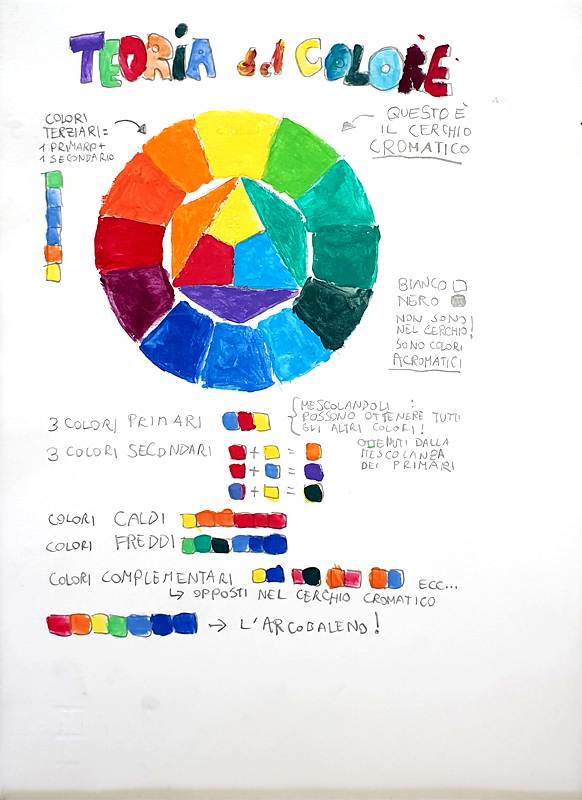 TEORIA del COLORE
COLORI
TERZIARI =
1 PRIMARIO +
1 SECONDARIO
QUESTO È
IL CERCHIO
CROMATICO
BIANCO
NERO
NON SONO
NEL CERCHIO!
SONO COLORI
ACROMATICI
3 COLORI PRIMARI
MESCOLANDOLI :
POSSONO OTTENERE TUTTI
GLI ALTRI COLORI!
3 COLORI SECONDARI
+ =
+ =
+ =
OTTENUTI DALLA
MESCOLANZA
DEI PRIMARI
COLORI CALDI
COLORI FREDDI
COLORI COMPLEMENTARI ECC...
↳ OPPOSTI NEL CERCHIO CROMATICO
→ L'ARCOBALENO!